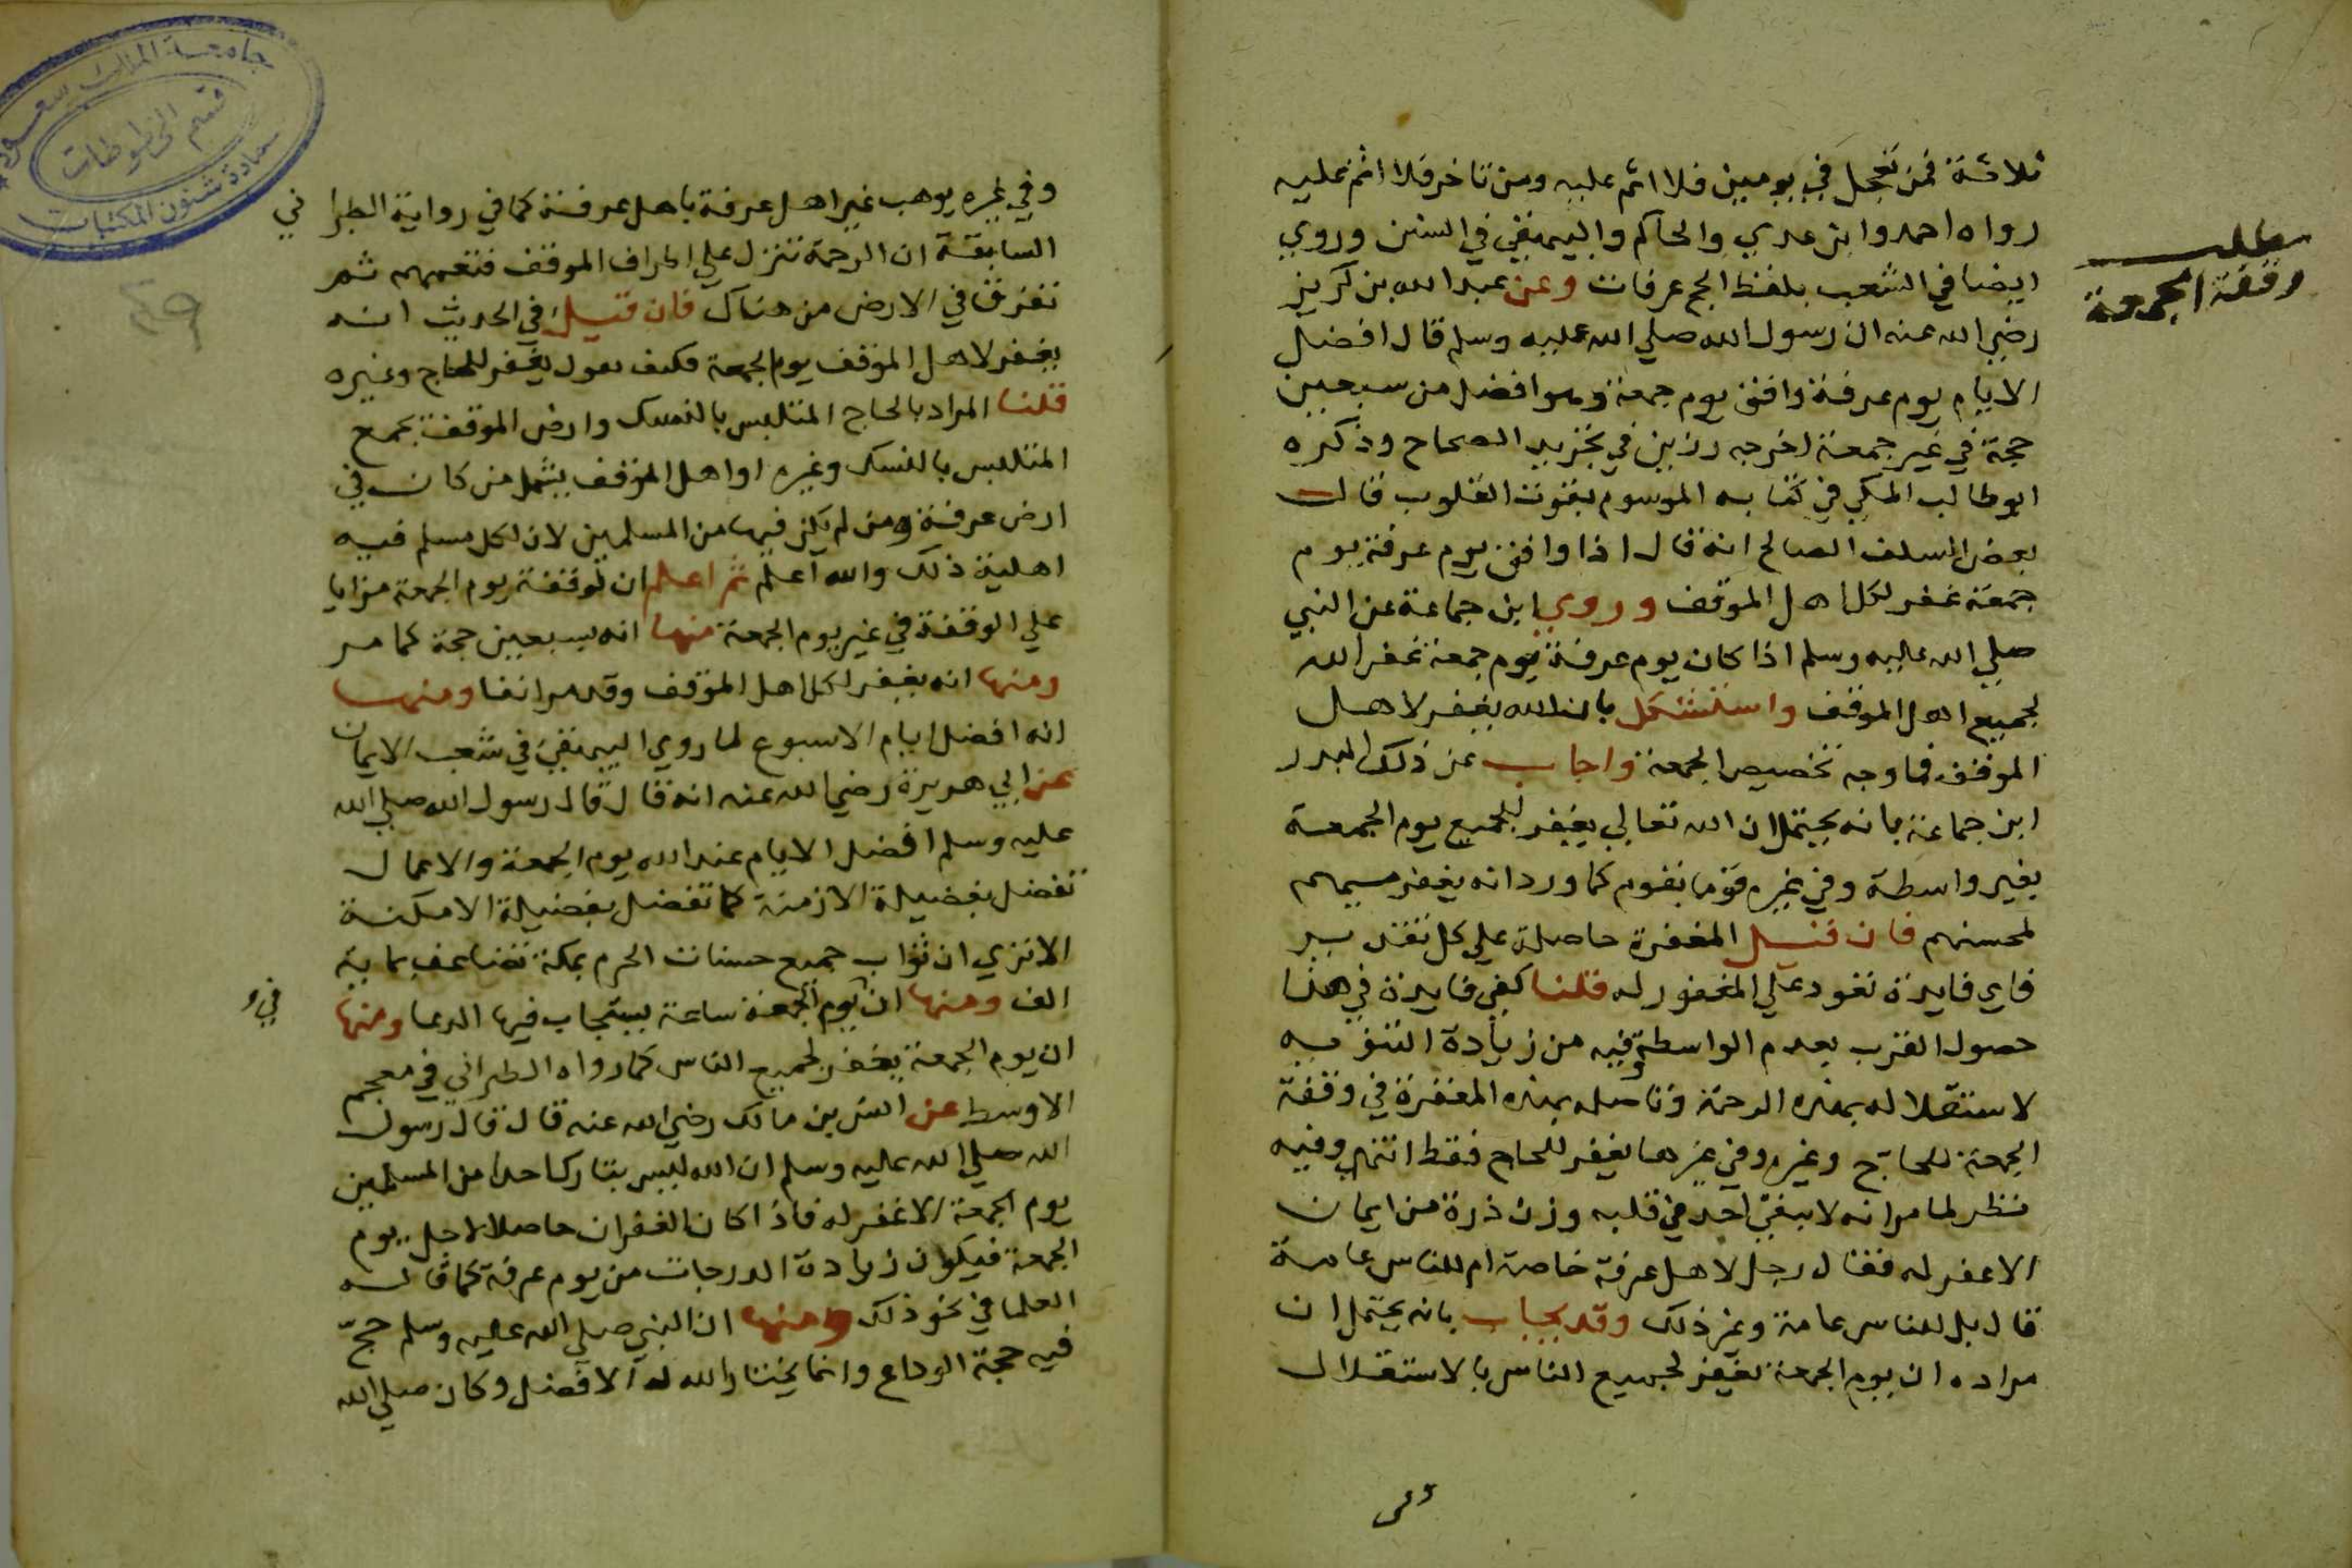 ثلاثة فمن تعجل في يومين فلا اثم عليه ومن تاخر فلا اثم عليه
رواه احمد وابن عدي والحاكم والبيهقي في السنن وروي
ايضا في الشعب بلفظ الحج عرفات وعن عبد الله بن كريز
رضي الله عنه ان رسول الله صلي الله عليه وسلم قال افضل
الايام يوم عرفة وافق يوم جمعة وهو افضل من سبعين
حجة في غير جمعة اخرجه رزين في تجريد الصحاح وذكره
ابو طالب المكي في كتابه الموسوم بقوت القلوب قال
بعض السلف الصالح انه قال اذا وافق يوم عرفة يوم
جمعة غفر لكل اهل الموقف وروي ابن جماعة عن النبي
صلي الله عليه وسلم اذا كان يوم عرفة يوم جمعة غفر الله
لجميع اهل الموقف واستشكل بان الله يغفر لاهل
الموقف فما وجه تخصيص الجمعة واجاب عن ذلك البدر
ابن جماعة بانه يحتمل ان الله تعالي يغفر للجميع يوم الجمعة
بغير واسطة وفي غيره قوما بقوم كما ورد انه يغفر مسيهم
لمحسنهم فان قيل المغفرة حاصلة علي كل تقدير
فاي فايدة تعود علي المغفور له قلنا كفي فايدة في هذا
حصول القرب بعدم الواسطة وفيه من زيادة التنويه
لاستقلاله بهذه الرحمة وتاصله بهذه المغفرة في وقفة
الجمعة للحاج وغيره وفي غيرها يغفر للحاج فقط انتهي وفيه
نظر لما مر انه لا يبقي احد في قلبه وزن ذرة من ايمان
الا غفر له فقال رجل لاهل عرفة خاصة ام للناس عامة
قال بل للناس عامة وغير ذلك وقد يجاب بانه يحتمل ان
مراده ان يوم الجمعة يغفر لجميع الناس بالاستقلال
مطلب
وقفة الجمعة
وفي غيره يوهب غير اهل عرفة باهل عرفة كما في رواية الطبراني
السابقة ان الرحمة تنزل علي اطراف الموقف فتعمهم ثم
تفرق في الارض من هناك فان قيل في الحديث انه
يغفر لاهل الموقف يوم الجمعة فكيف تقول يغفر للحاج وغيره
قلنا المراد بالحاج المتلبس بالنسك وارض الموقف تجمع
المتلبس بالنسك وغيره او اهل الموقف يشمل من كان في
ارض عرفة ومن لم يكن فيها من المسلمين لان لكل مسلم فيه
اهلية ذلك والله اعلم ثم اعلم ان لوقفة يوم الجمعة مزايا
علي الوقفة في غير يوم الجمعة منها انه بسبعين حجة كما مر
ومنها انه يغفر لكل اهل الموقف وقد مر انفا ومنها
انه افضل ايام الاسبوع لما روي البيهقي في شعب الايمان
عن ابي هريرة رضي الله عنه انه قال قال رسول الله صلي الله
عليه وسلم افضل الايام عند الله يوم الجمعة والاعمال
تفضل بفضيلة الازمنة كما تفضل بفضيلة الامكنة
الا تري ان ثواب جميع حسنات الحرم بمكة تضاعف بماية
الف ومنها ان يوم الجمعة ساعة يستجاب فيها الدعا ومنها
في
ان يوم الجمعة يغفر لجميع الناس كما رواه الطبراني في معجم
الاوسط عن انس بن مالك رضي الله عنه قال قال رسول
الله صلي الله عليه وسلم ان الله ليس بتارك احدا من المسلمين
يوم الجمعة الا غفر له فاذا كان الغفران حاصلا لاجل يوم
الجمعة فيكون زيادة الدرجات من يوم عرفة كما قاله
العلما في نحو ذلك ومنها ان النبي صلي الله عليه وسلم حج
فيه حجة الوداع وانما يختار الله له الافضل وكان صلي الله
٤٩
جامعة الملك سعود
قسم المخطوطات
عمادة شئون المكتبات